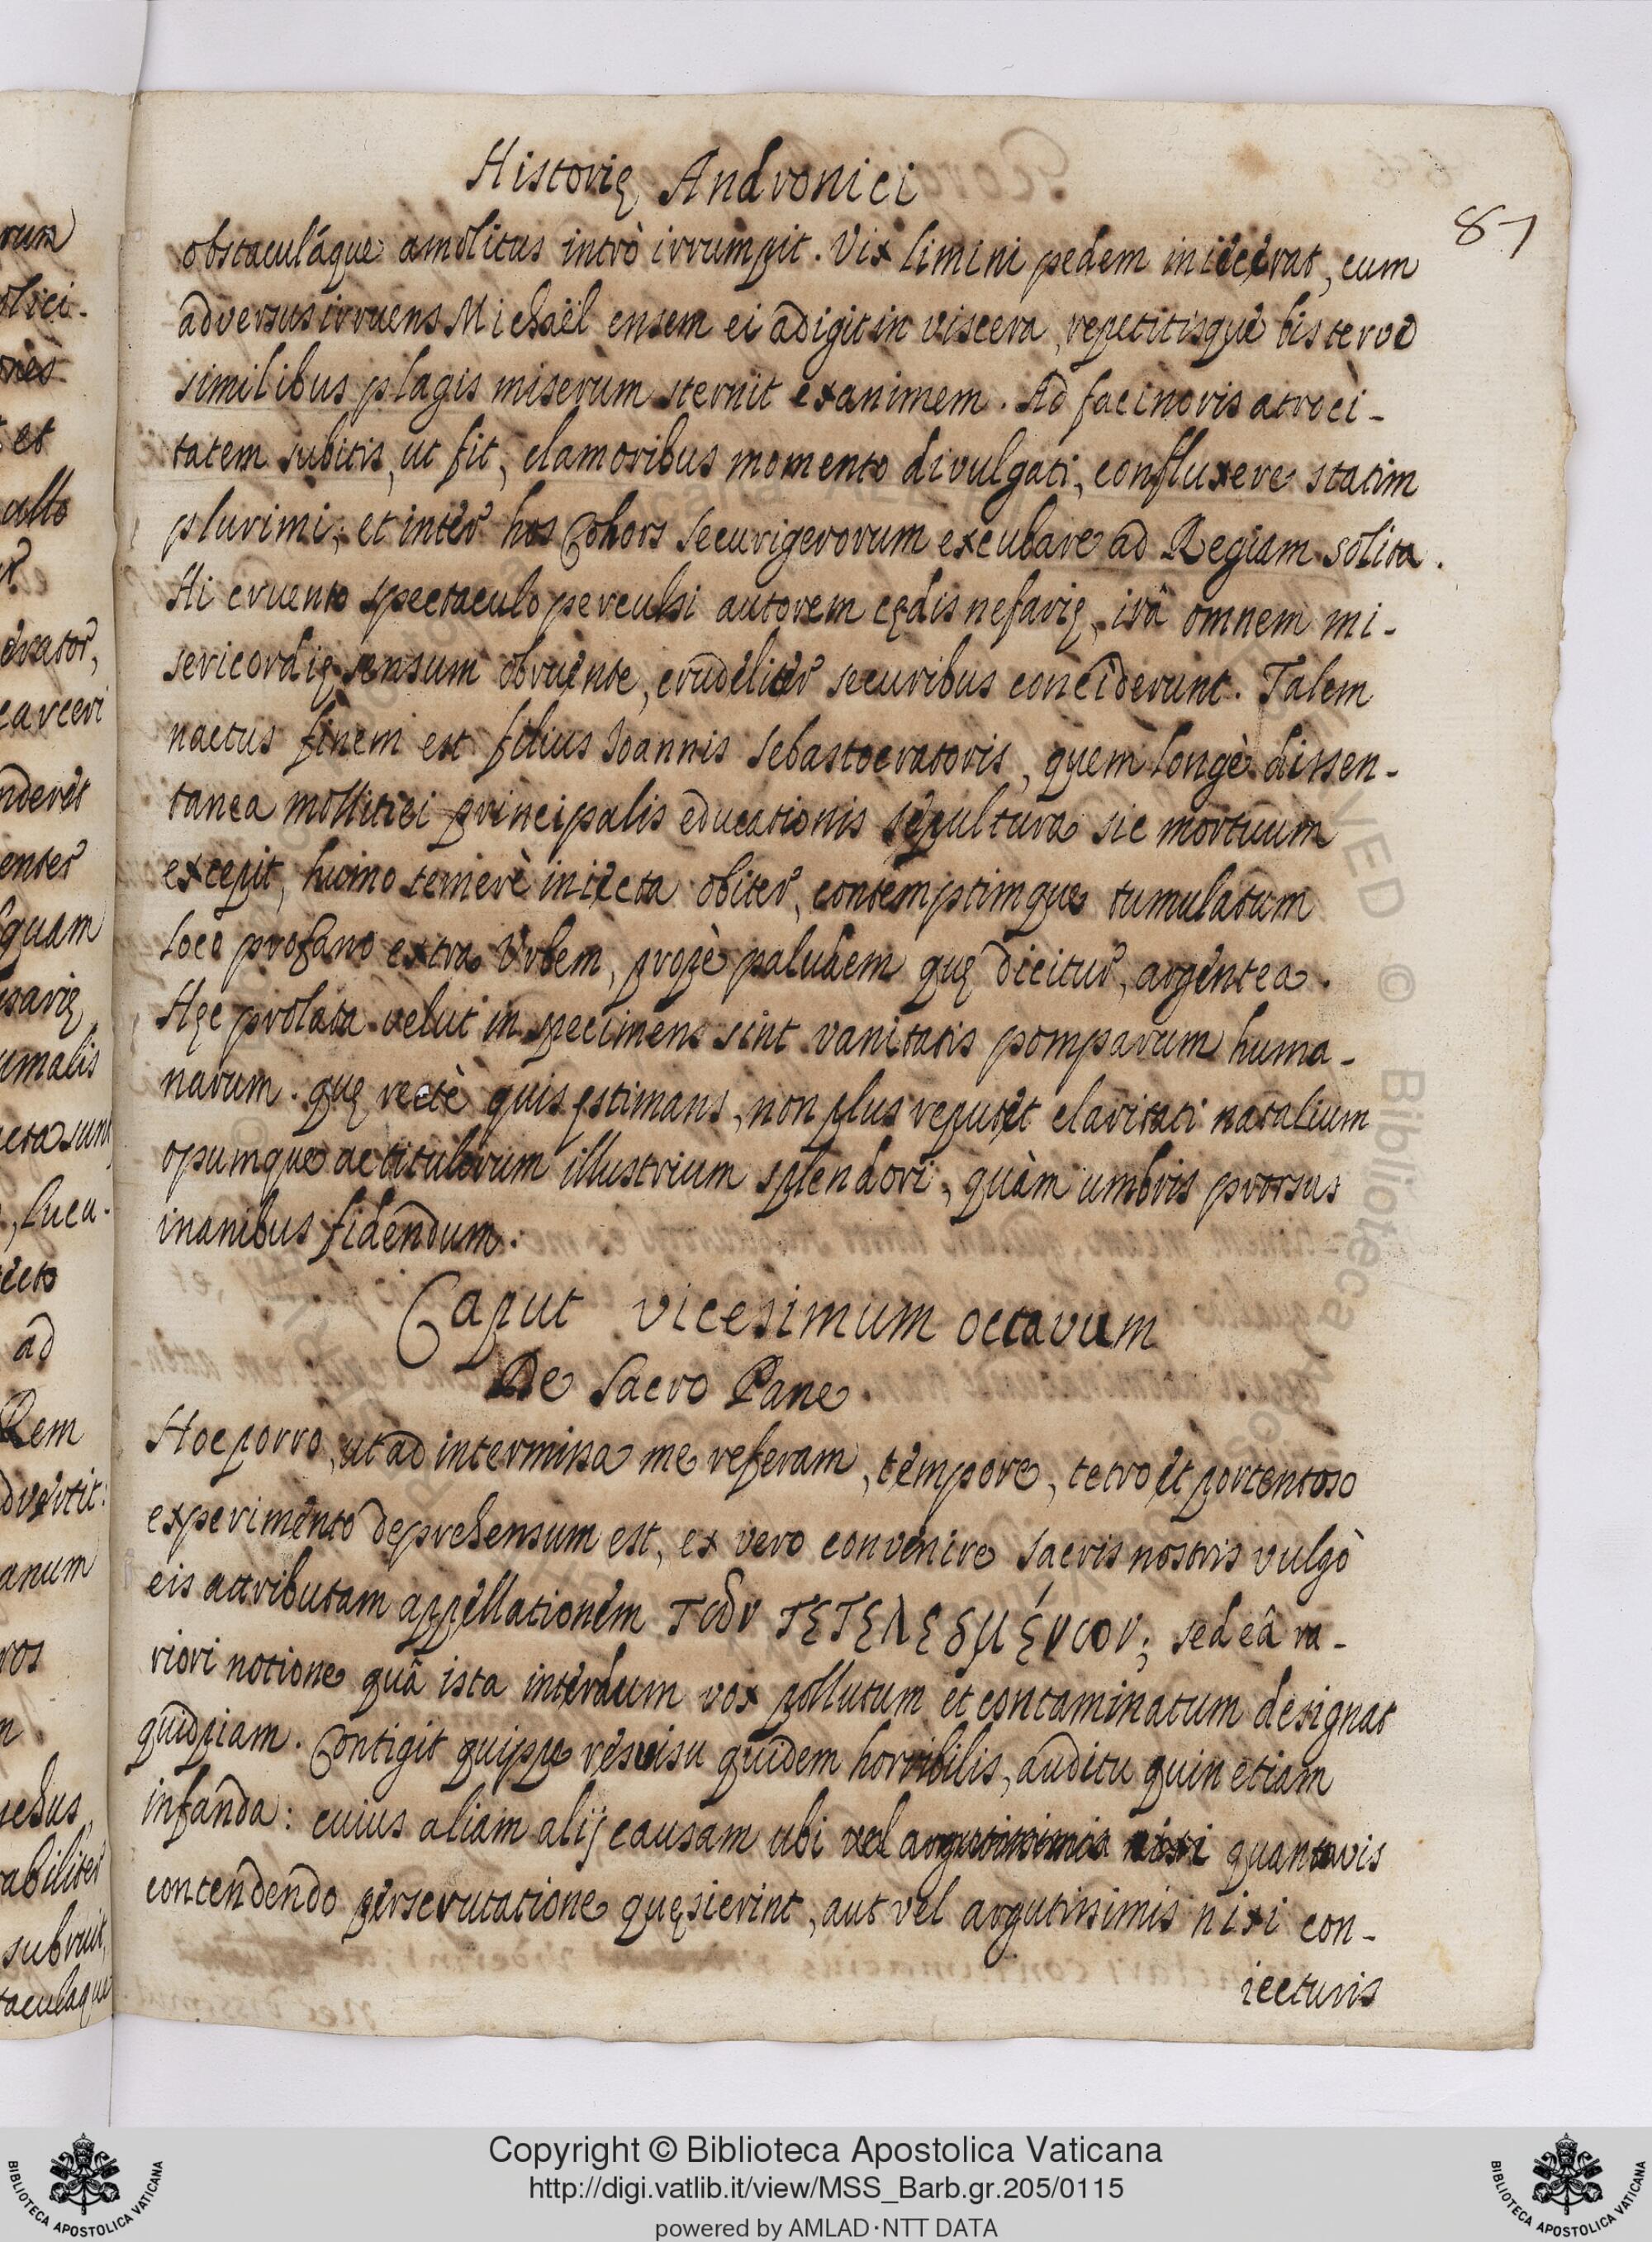 Historię Andronici
87
obstaculáque amolitus intrò irrumpit. Vix limini pedem iniecerat, cum
adversus irruens Michaël ensem ei adigit in viscera, repetitisque bis terve
similibus plagis miserum sternit exanimem. Ad facinoris atroci-
tatem subitis, ut fit, clamoribus momento divulgati, confluxere statim
plurimi; et inter hos Cohors securigerorum excubare ad Regiam solita.
Hi cruento spectaculo perculsi autorem cędis nefarię, irâ omnem mi-
sericordię sensum obruente, crudeliter securibus conciderunt. Talem
nactus finem est filius Joannis Sebastocratoris, quem longè dissen-
tanea mollitiei principalis educationis sepultura sic mortuum
excepit, humo temerè iniecta obiter, contemptimque tumulatum
loco profano extra Urbem, propè paludem quę dicitur, argentea.
Hęc prolata velut in specimens sint vanitatis pomparum huma-
narum. quę rectè quis ęstimans, non plus reputet claritati natalium
opumque ac titulorum illustrium splendori, quàm umbris prorsus
inanibus fidendum.
Caput vicesimum octavum
De Sacro Pane.
Hoc porro, ut ad intermissa me referam, tempore, tetro et portentoso
experimento deprehensum est, ex vero convenire sacris nostris vulgò
eis attributam appellationem τῶν τετελεσμένων; sed eâ ra-
riori notione quâ ista interdum vox pollutum et contaminatum designat
quidpiam. Contigit quippe res visu quidem horribilis, auditu quin etiam
infanda: cuius aliam alij causam ubi vel argutissimis nixi quantavis
contendendo perscrutatione quęsierint, aut vel argutissimis nixi con-
iecturis
Copyright © Biblioteca Apostolica Vaticana
http://digi.vatlib.it/view/MSS_Barb.gr.205/0115
powered by AMLAD·NTT DATA
BIBLIOTECA APOSTOLICA VATICANA
BIBLIOTECA APOSTOLICA VATICANA